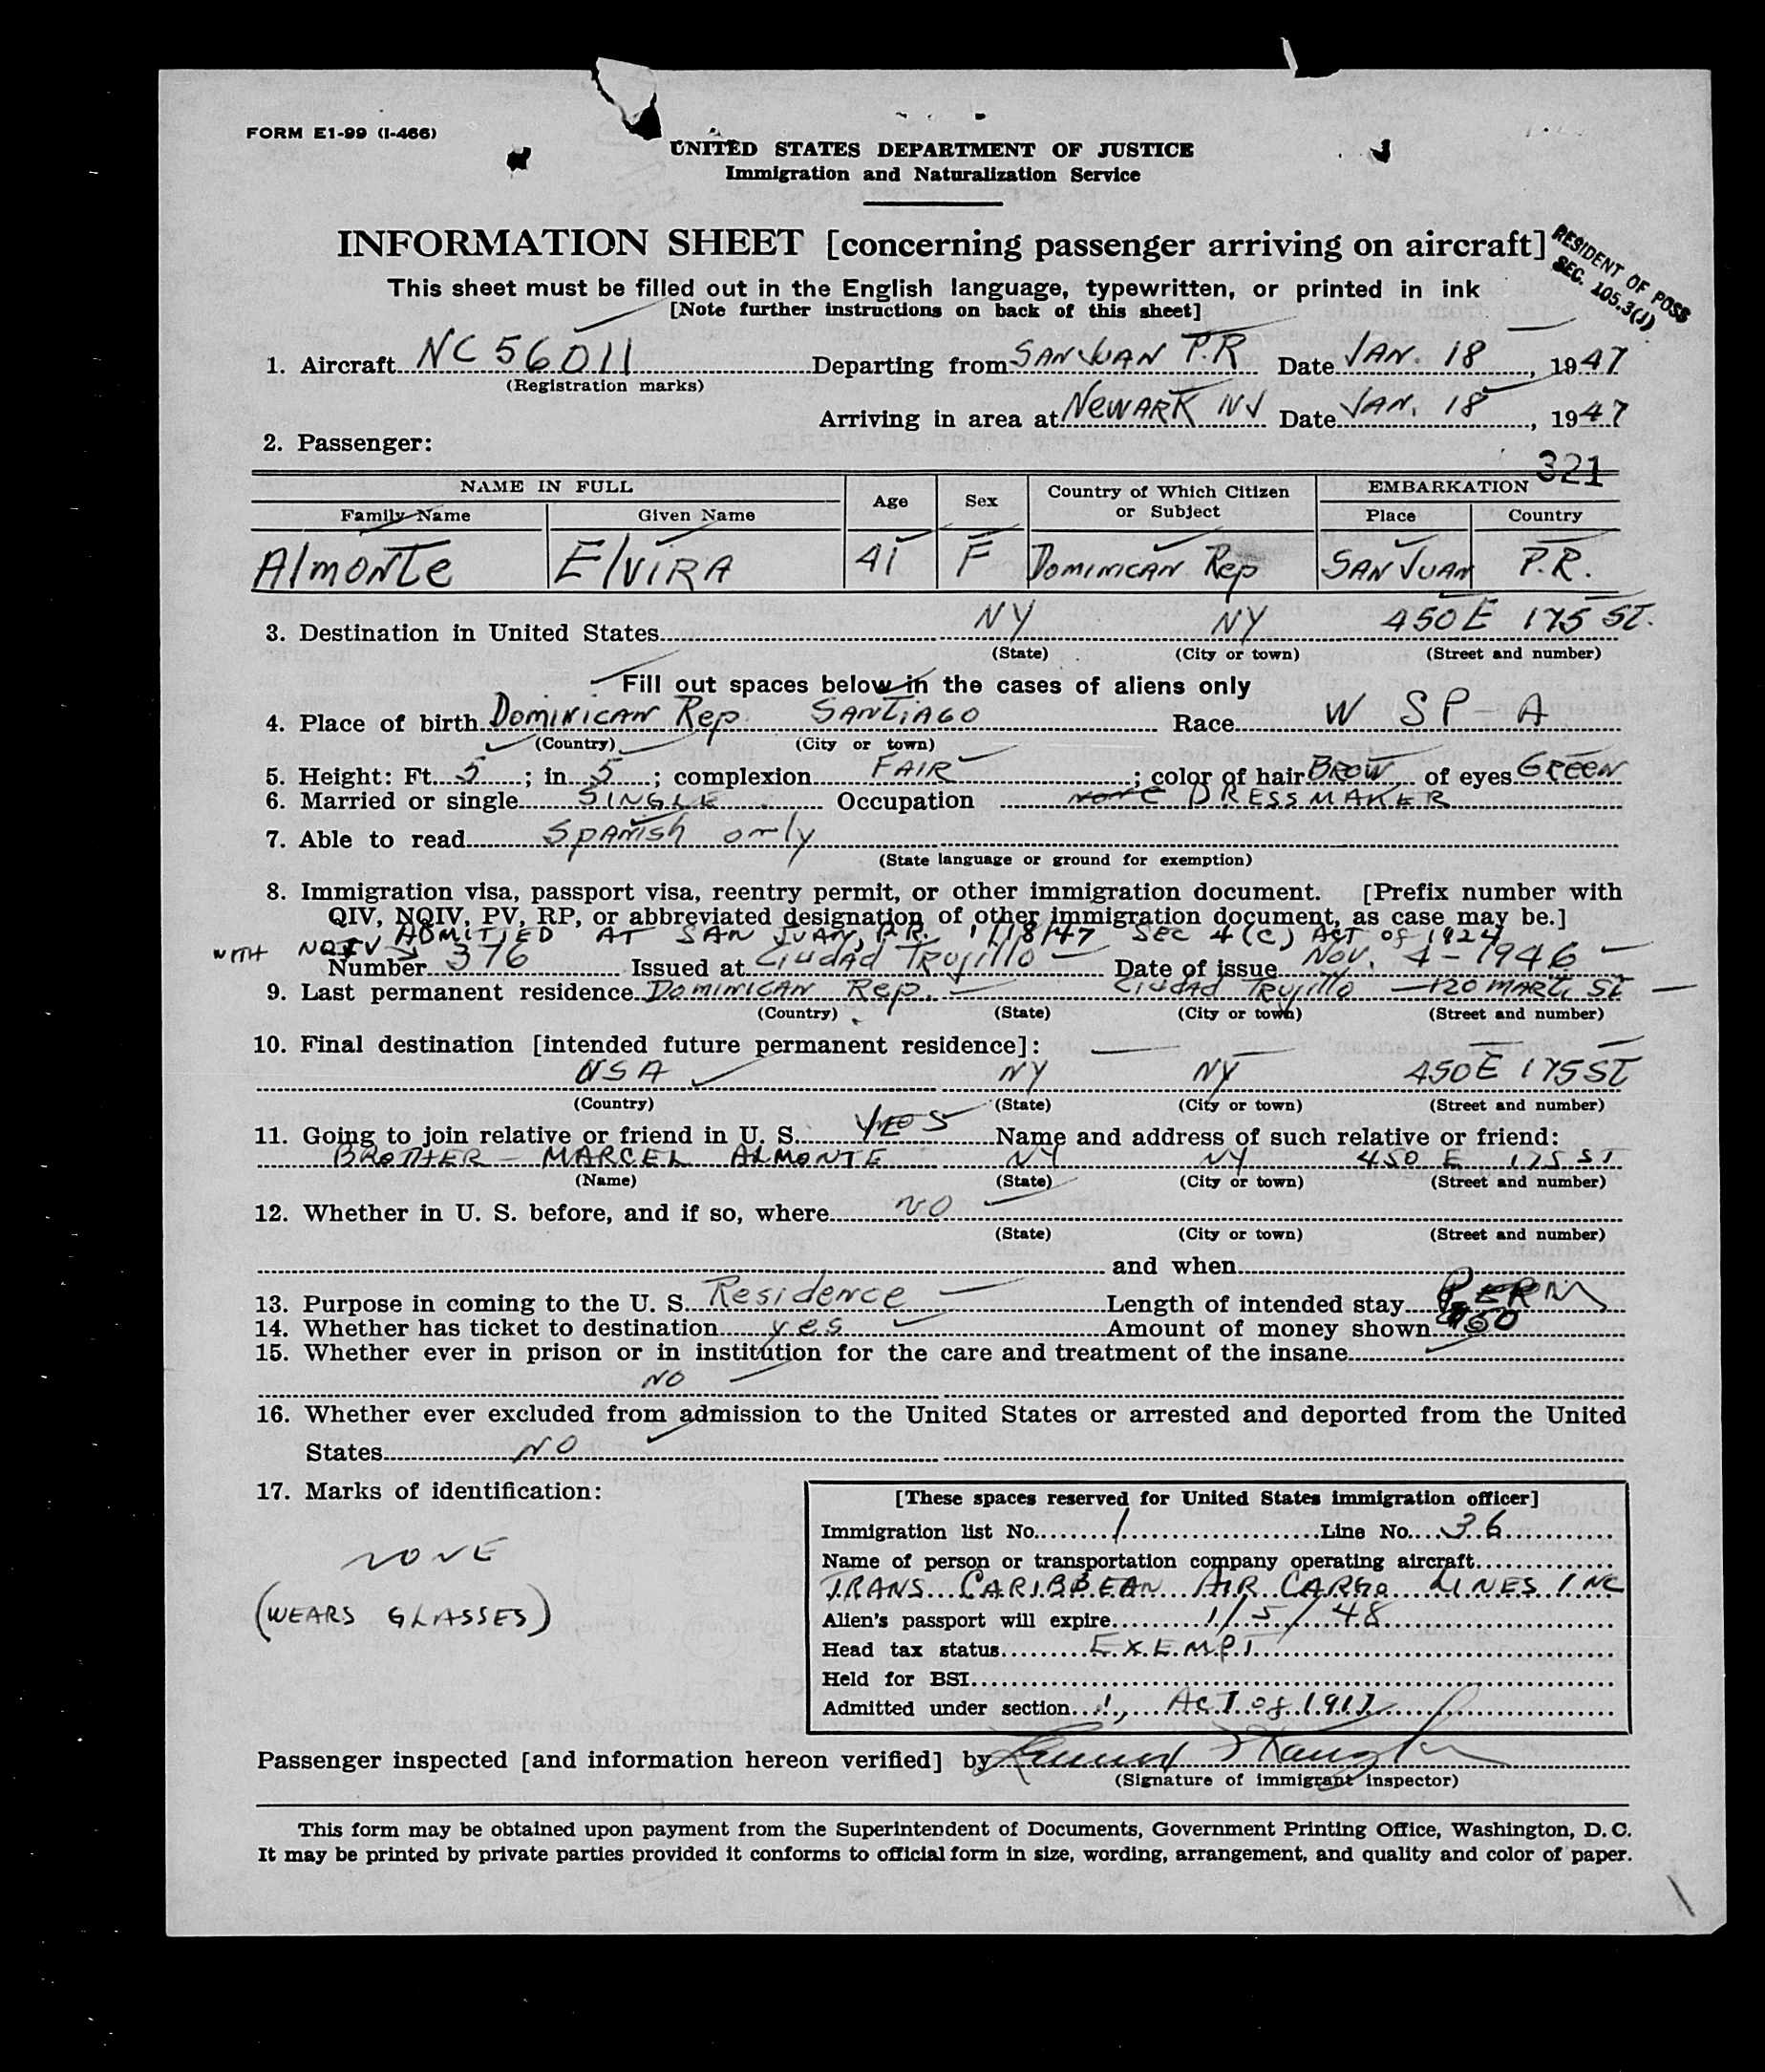 FORM E1-99 (I-466)
UNITED STATES DEPARTMENT OF JUSTICE
Immigration and Naturalization Service
INFORMATION SHEET [concerning passenger arriving on aircraft]
RESIDENT OF POSS
SEC. 105.3(J)
This sheet must be filled out in the English language, typewritten, or printed in ink
[Note further instructions on back of this sheet]
1. Aircraft NC 56011 Departing from SAN JUAN P.R Date JAN. 18, 1947
(Registration marks)
Arriving in area at NEWARK NJ Date JAN. 18, 1947
2. Passenger:
321
NAME IN FULL Age Sex Country of Which Citizen or Subject EMBARKATION
Family Name Given Name Place Country
Almonte ElVIRA 41 F DOMINICAN Rep SAN JUAN P.R.
3. Destination in United States NY NY 450 E 175 ST.
(State) (City or town) (Street and number)
Fill out spaces below in the cases of aliens only
4. Place of birth DOMINICAN Rep. SANTIAGO Race W SP-A
(Country) (City or town)
5. Height: Ft. 5; in. 5; complexion FAIR; color of hair BROW of eyes GREEN
6. Married or single SINGLE Occupation none DRESSMAKER
7. Able to read Spanish only
(State language or ground for exemption)
8. Immigration visa, passport visa, reentry permit, or other immigration document. [Prefix number with
QIV, NQIV, PV, RP, or abbreviated designation of other immigration document, as case may be.]
ADMITTED AT SAN JUAN, P.R. 1/18/47 SEC 4(C) ACT of 1924
WITH NQIV
Number 376 Issued at Ciudad Trujillo Date of issue Nov. 4-1946
9. Last permanent residence DOMINICAN Rep. Ciudad Trujillo 120 MARTI ST
(Country) (State) (City or town) (Street and number)
10. Final destination [intended future permanent residence]:
USA NY NY 450 E 175 ST
(Country) (State) (City or town) (Street and number)
11. Going to join relative or friend in U. S. YES Name and address of such relative or friend:
BROTHER - MARCEL ALMONTE NY NY 450 E 175 ST
(Name) (State) (City or town) (Street and number)
12. Whether in U. S. before, and if so, where NO
(State) (City or town) (Street and number)
and when
13. Purpose in coming to the U. S. Residence Length of intended stay PERM
14. Whether has ticket to destination yes Amount of money shown
15. Whether ever in prison or in institution for the care and treatment of the insane
NO
16. Whether ever excluded from admission to the United States or arrested and deported from the United
States NO
17. Marks of identification:
NONE
(WEARS GLASSES)
[These spaces reserved for United States immigration officer]
Immigration list No. 1 Line No. 36
Name of person or transportation company operating aircraft
TRANS CARIBBEAN AIR CARGO LINES INC
Alien's passport will expire 1/5/48
Head tax status EXEMPT
Held for BSI
Admitted under section 1, ACT of 1917
Passenger inspected [and information hereon verified] by
(Signature of immigrant inspector)
This form may be obtained upon payment from the Superintendent of Documents, Government Printing Office, Washington, D. C.
It may be printed by private parties provided it conforms to official form in size, wording, arrangement, and quality and color of paper.